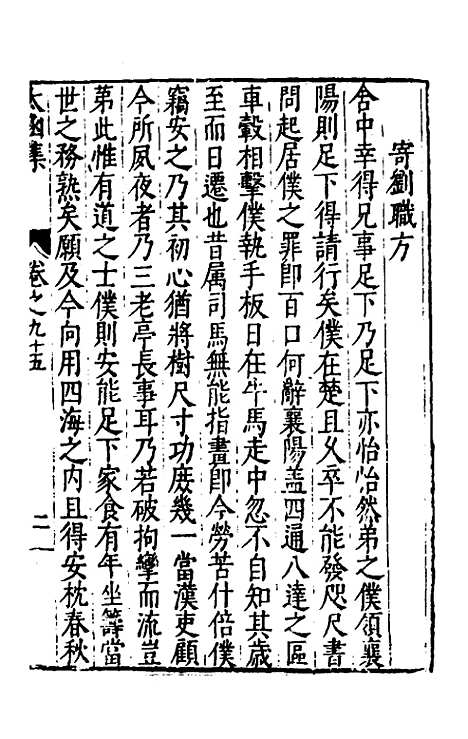 寄劉職方
舍中幸得兄事足下乃足下亦怡怡然弟之僕領襄
陽則足下得請行矣僕在楚且乆卒不能發咫尺書
問起居僕之罪即百口何辭襄陽盖四通八達之區
車轂相擊僕執手板日在牛馬走中忽不自知其歲
至而日遷也昔属司馬無能指畫即今勞苦什倍僕
竊安之乃其初心猶將樹尺寸功庻幾一當漢吏顧
今所夙夜者乃三老亭長事耳乃若破拘攣而流豈
苐此惟有道之士僕則安能足下家食有年坐籌當
世之務熟矣願及今向用四海之内且得安枕春秋
太函集
卷之九十五
二